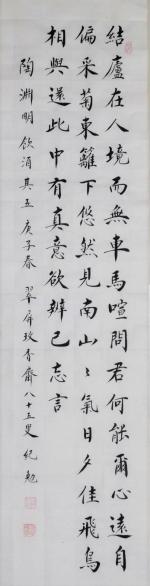 結廬在人境而無車馬喧問君何能爾心遠自
偏采菊東籬下悠然見南山山氣日夕佳飛鳥
相與還此中有真意欲辨已忘言
陶淵明飲酒其五庚子春 翠屏玫香齋八十五叟紀勉